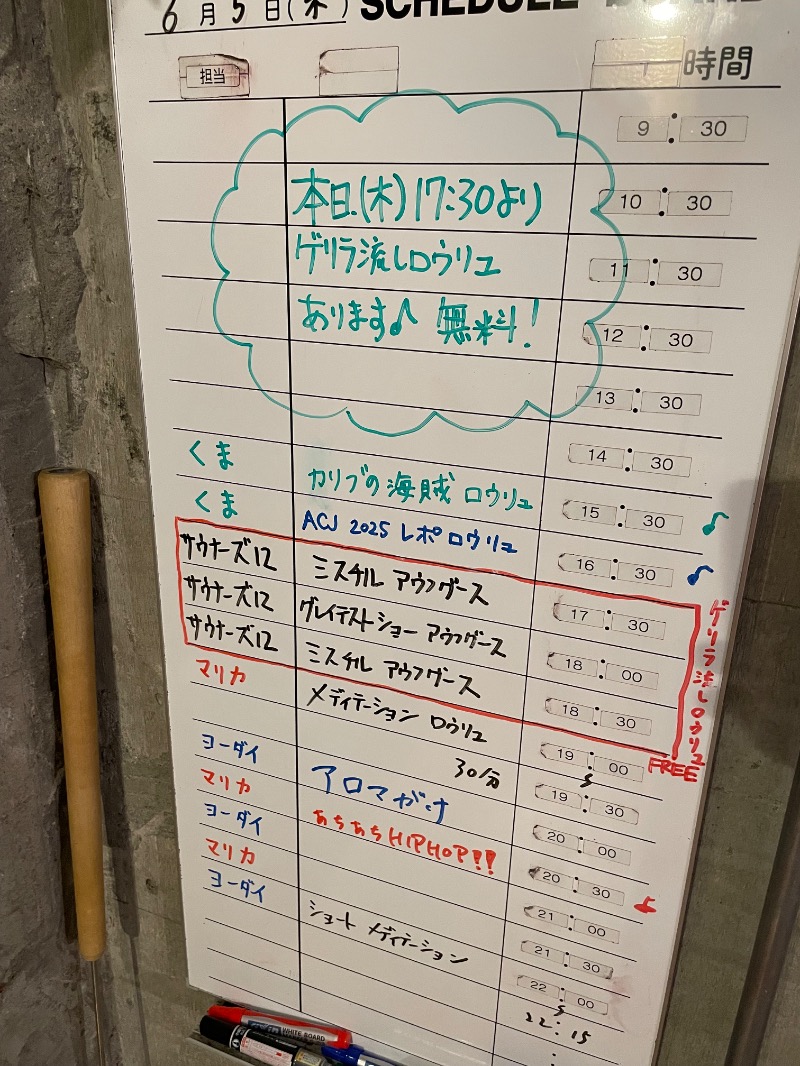 6月5日(木) SCHEDULE
担当 時間
9:30
本日(木)17:30より 10:30
ゲリラ流しロウリュ 11:30
あります♪ 無料! 12:30
13:30
くま カリブの海賊 ロウリュ 14:30
くま ACJ 2025 レポ ロウリュ 15:30 ♪
サウナーズ12 ミスチル アウフグース 16:30 ♪
サウナーズ12 グレイテストショー アウフグース 17:30
サウナーズ12 ミスチル アウフグース 18:00
マリカ メディテーション ロウリュ 18:30
30分 19:00
ヨーダイ アロマがけ 19:30
マリカ あちあちHIPHOP!! 20:00
ヨーダイ 20:30 ♪
マリカ 21:00
ヨーダイ ショート メディテーション 21:30
22:00
22:15
ゲリラ流しロウリュ
FREE
WHITE BOARD